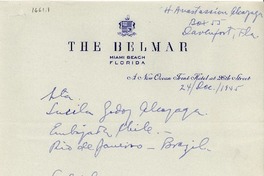 1661.1
H Anastassion Alcayaga
Box 55
Davenport, Fla.
THE BELMAR
MIAMI BEACH
FLORIDA
A New Ocean Front Hotel at 26th Street
24/Dec./1945
Sra
Lucila Godoy Alcayaga
Embajada Chile —
Rio de Janeiro — Brazil.